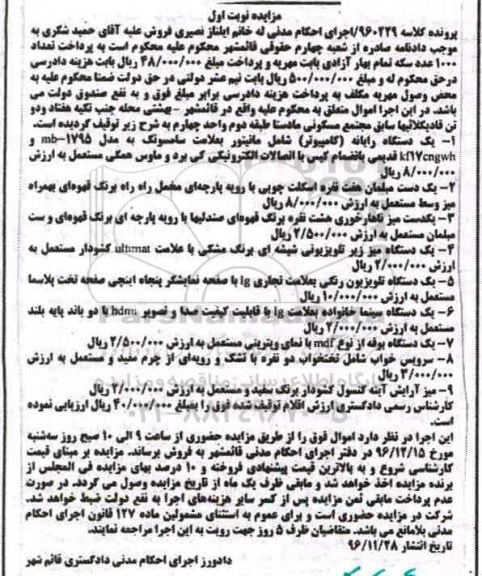 مزایده نوبت اول
پرونده کلاسه ۹۶۰۲۲۹/اجرای احکام مدنی له خانم ایلناز نصیری فروش علیه آقای حمید شکری به
موجب دادنامه صادره از شعبه چهارم حقوقی قائمشهر محکوم علیه محکوم است به پرداخت تعداد
۱۰۰۰ عدد سکه تمام بهار آزادی بابت مهریه و پرداخت مبلغ ۴۸/۰۰۰/۰۰۰ ریال بابت هزینه دادرسی
درحق محکوم له و مبلغ ۵۰۰/۰۰۰/۰۰۰ ریال بابت نیم عشر دولتی در حق دولت ضمنا محکوم علیه به
محض وصول مهریه مکلف به پرداخت هزینه دادرسی برابر مبلغ فوق و به نفع صندوق دولت می
باشد. در این اجرا اموال متعلق به محکوم علیه واقع در قائمشهر - بهشتی محله جنب تکیه هفتاد ودو
تن قادیکلائیها سابق مجتمع مسکونی ماندستا طبقه دوم واحد چهارم به شرح زیر توقیف گردیده است.
۱- یک دستگاه رایانه (کامپیوتر) شامل مانیتور بعلامت سامسونگ به مدل mb-۱۷۹۵ و
kf۱۷cngwh قدیمی بانضمام کیس با اتصالات الکترونیکی کی برد و ماوس همگی مستعمل به ارزش
۸/۰۰۰/۰۰۰ ریال
۲- یک دست مبلمان هفت نفره اسکلت چوبی با رویه پارچه‌ای مخمل راه راه برنگ قهوه‌ای بهمراه
میز وسط مستعمل به ارزش ۸/۰۰۰/۰۰۰ ریال
۳- یکدست میز ناهارخوری هشت نفره برنگ قهوه‌ای صندلیها با رویه پارچه ای برنگ قهوه‌ای و ست
مبلمان مستعمل به ارزش ۲/۵۰۰/۰۰۰ ریال
۴- یک دستگاه میز زیر تلویزیونی شیشه ای برنگ مشکی با علامت ultimat کشودار مستعمل به
ارزش ۲/۰۰۰/۰۰۰ ریال
۵- یک دستگاه تلویزیون رنگی بعلامت تجاری lg با صفحه نمایشگر پنجاه اینچی صفحه تخت پلاسما
مستعمل به ارزش ۱۰/۰۰۰/۰۰۰ ریال
۶- یک دستگاه سینما خانواده بعلامت lg با قابلیت کیفیت صدا و تصویر hdmi با دو باند پایه بلند
مستعمل به ارزش ۲/۰۰۰/۰۰۰ ریال
۷- یک دستگاه بوفه از نوع mdf با نمای ویترینی مستعمل به ارزش ۲/۵۰۰/۰۰۰ ریال
۸- سرویس خواب شامل تختخواب دو نفره با تشک و رویه‌ای از چرم سفید و مستعمل به ارزش
۳/۰۰۰/۰۰۰ ریال
۹- میز آرایش آینه کنسول کشودار برنگ سفید و مستعمل به ارزش ۲/۰۰۰/۰۰۰ ریال
کارشناس رسمی دادگستری ارزش اقلام توقیف شده فوق را بمبلغ ۴۰/۰۰۰/۰۰۰ ریال ارزیابی نموده
است.
این اجرا در نظر دارد اموال فوق را از طریق مزایده حضوری از ساعت ۹ الی ۱۰ صبح روز سه‌شنبه
مورخ ۹۶/۱۲/۱۵ در دفتر اجرای احکام مدنی قائمشهر به فروش برساند. مزایده بر مبنای قیمت
کارشناسی شروع و به بالاترین قیمت پیشنهادی فروخته و ۱۰ درصد بهای مزایده فی المجلس از
برنده مزایده اخذ خواهد شد و مابقی ظرف یک ماه از تاریخ مزایده وصول می گردد. در صورت
عدم پرداخت مابقی ثمن مزایده پس از کسر سایر هزینه‌های اجرا به نفع دولت ضبط خواهد شد.
شرکت در مزایده حضوری است و برای عموم به استثنای مشمولین ماده ۱۲۷ قانون اجرای احکام
مدنی بلامانع می باشد. متقاضیان ظرف ۵ روز جهت رویت به این اجرا مراجعه نمایند.
تاریخ انتشار ۹۶/۱۱/۲۸
دادورز اجرای احکام مدنی دادگستری قائم شهر